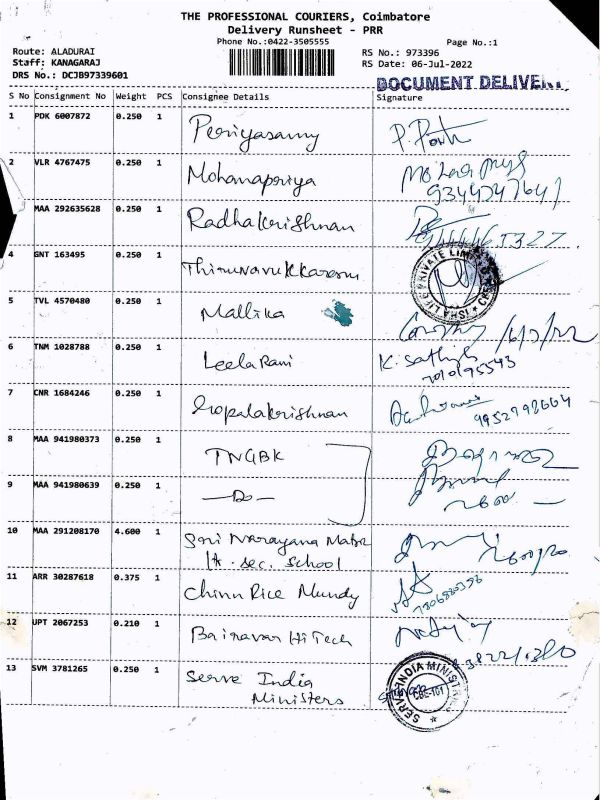 THE PROFESSIONAL COURIERS, Coimbatore
Delivery Runsheet - PRR
Phone No.:0422-3505555
Page No.:1
Route: ALADURAI
RS No.: 973396
Staff: KANAGARAJ
RS Date: 06-Jul-2022
DRS No.: DCJB97339601
DOCUMENT DELIVERY
S No Consignment No Weight PCS Consignee Details Signature
1 PDK 6007872 0.250 1 Periyasamy
2 VLR 4767475 0.250 1 Mohanapriya
MAA 292635628 0.250 1 Radhakrishnan
4 GNT 163495 0.250 1 Thirunavukkarasu
5 TVL 4570480 0.250 1 Mallika
6 TNM 1028788 0.250 1 Leela Rani K. Sathya
7 CNR 1684246 0.250 1 Gopalakrishnan
8 MAA 941980373 0.250 1 TNGBK
9 MAA 941980639 0.250 1 —Do—
10 MAA 291208170 4.600 1 Sri Narayana Matr
Hr. sec. School
11 ARR 30287618 0.375 1 Chinn Rice Mundy
12 UPT 2067253 0.210 1 Bairavar Hi Tech
13 SVM 3781265 0.250 1 Serve India
Ministers